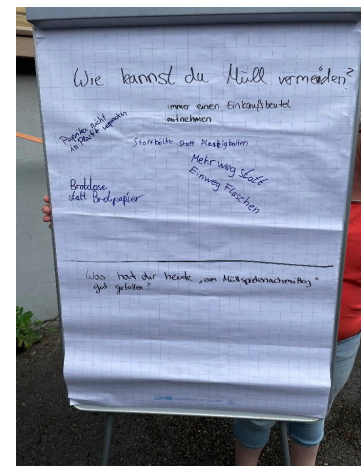 Wie kannst du Müll vermeiden?
immer einen Einkaufsbeutel
mitnehmen
nicht
in Plastik verpacken
statt
Mehrweg statt
Einweg Flaschen
Brotdose
statt Brotpapier
Was hat dir heute „am Müllspielenachmittag“
gut gefallen?